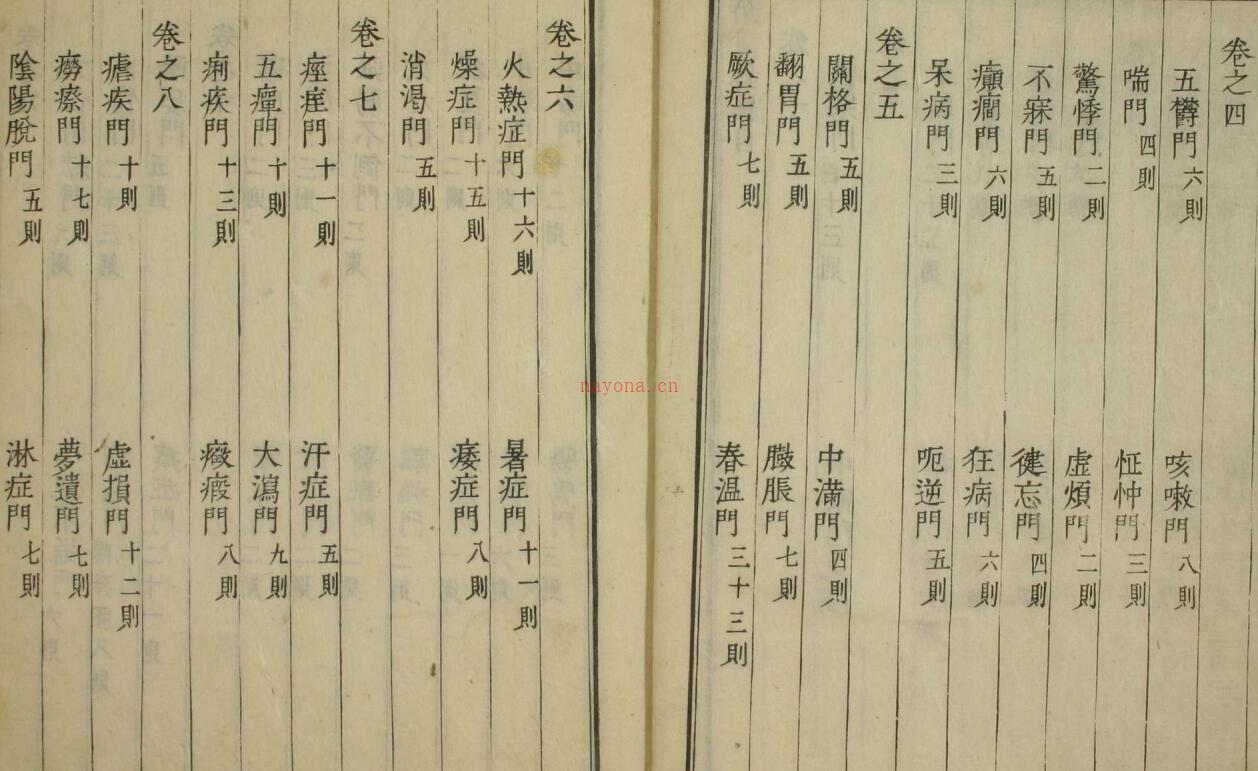 卷之四
五鬱門 六則 咳嗽門 八則
喘門 四則 怔忡門 三則
驚悸門 二則 虛煩門 二則
不寐門 五則 健忘門 四則
癲癇門 六則 狂病門 六則
呆病門 三則 呃逆門 五則
卷之五
關格門 五則 中滿門 四則
翻胃門 五則 臌脹門 七則
厥症門 七則 春溫門 三十三則
卷之六
火熱症門 十六則 暑症門 十一則
燥症門 十五則 痿症門 八則
消渴門 五則
卷之七
痙痓門 十一則 汗症門 五則
五癉門 十則 大瀉門 九則
痢疾門 十三則 癥瘕門 八則
卷之八
瘧疾門 十則 虛損門 十二則
癆瘵門 十七則 夢遺門 七則
陰陽脫門 五則 淋症門 七則
nayona.cn